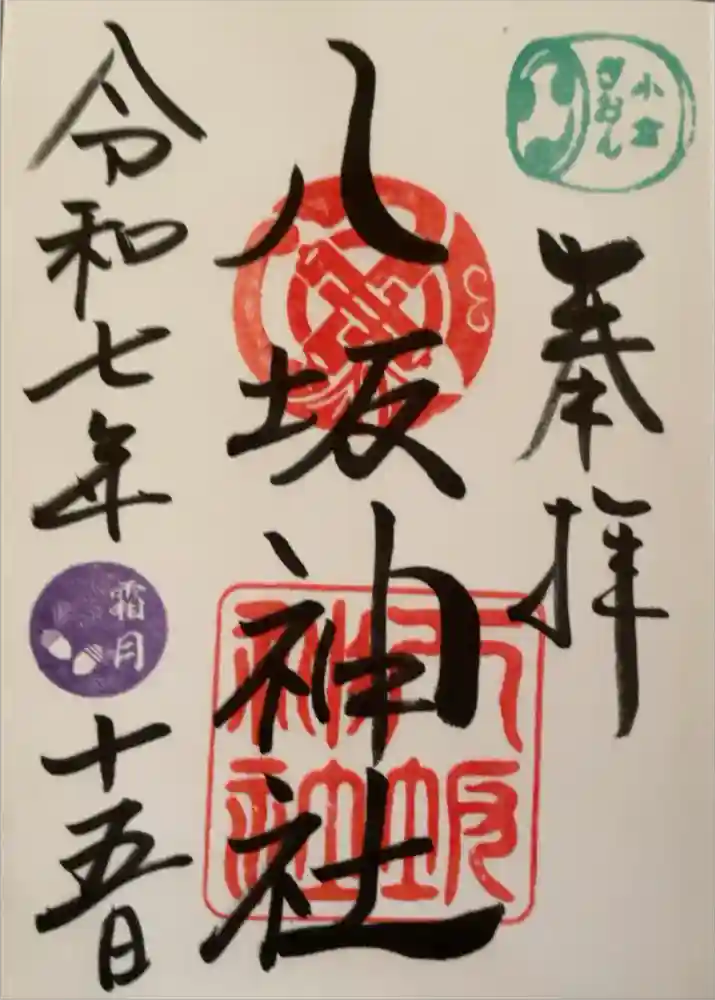 小倉
ぎおん
奉拝
八坂神社
八坂
神社
令和七年
霜月
十五日